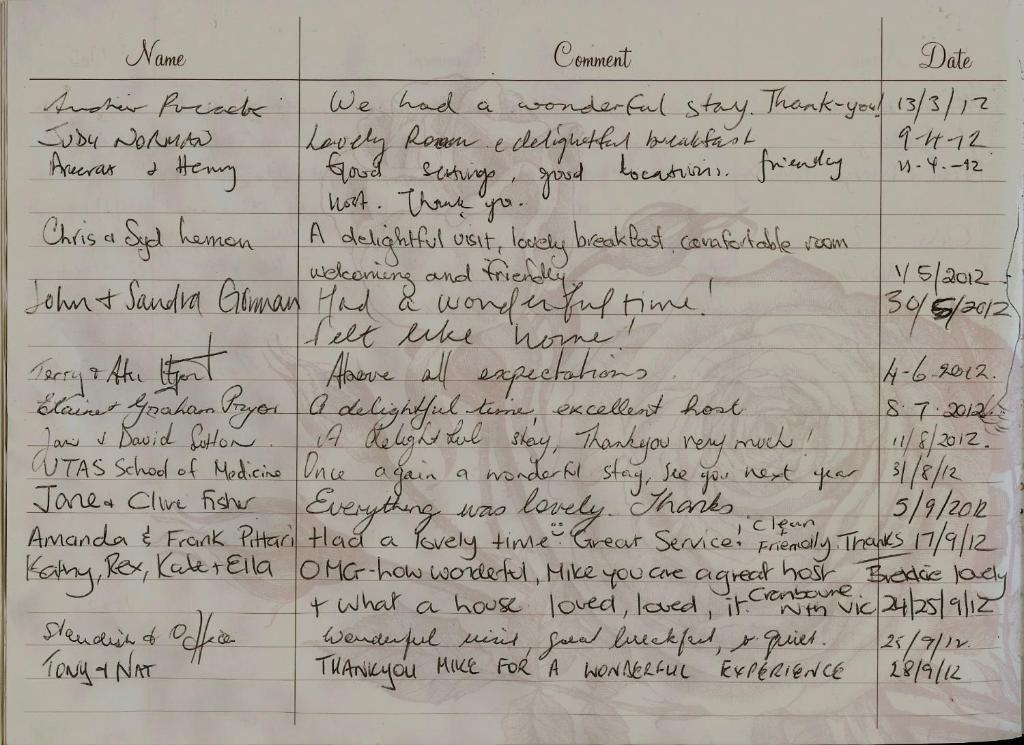 Name Comment Date
We had a wonderful stay. Thank-you! 13/3/12
JUDY NORMAN Lovely Room & delightful breakfast 9-4-12
& Henny Good settings, good locations. friendly 11-4-12
host. Thank you.
Chris & Syd Lemon A delightful visit, lovely breakfast comfortable room
welcoming and friendly 1/5/2012
John + Sandra Gorman Had a wonderful time! 30/5/2012
felt like home!
Terry & Above all expectations. 4-6-2012.
Elaine & Graham Pryor A delightful time, excellent host 8.7.2012
Jan & David Sutton. A delightful stay, Thankyou very much! 11/8/2012.
UTAS School of Medicine Once again a wonderful stay, see you next year 31/8/12
Jane & Clive Fisher Everything was lovely. Thanks 5/9/2012
Amanda & Frank Pittari Had a lovely time. Great Service, Clean Friendly. Thanks 17/9/12
Kathy, Rex, Kate + Ella OMG-how wonderful, Mike you are a great host Breckie lovely
+ what a house loved, loved, it. Cranbourne Nth Vic 24/25/9/12
Wonderful visit, great breakfast, & quiet. 25/9/12.
TONY & NAT THANKYOU MIKE FOR A WONDERFUL EXPERIENCE 28/9/12